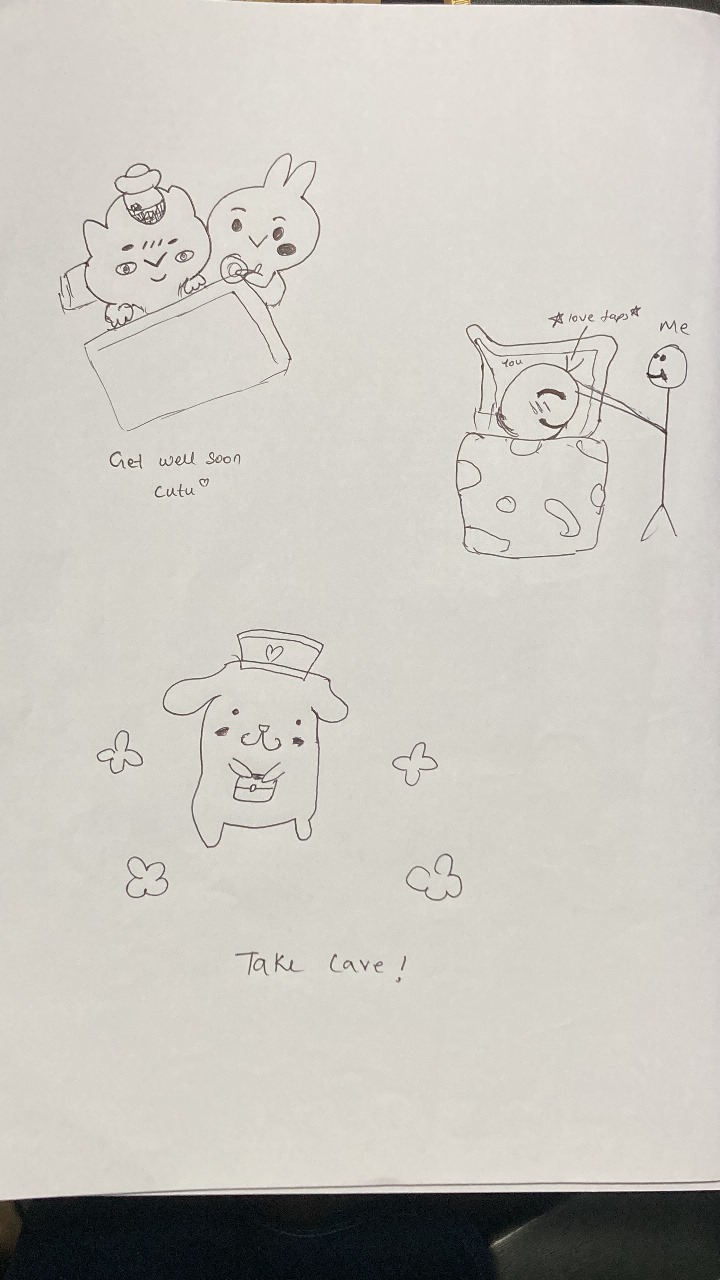 Get well soon
cutu♡
☆love taps☆
Me
You
Take care!